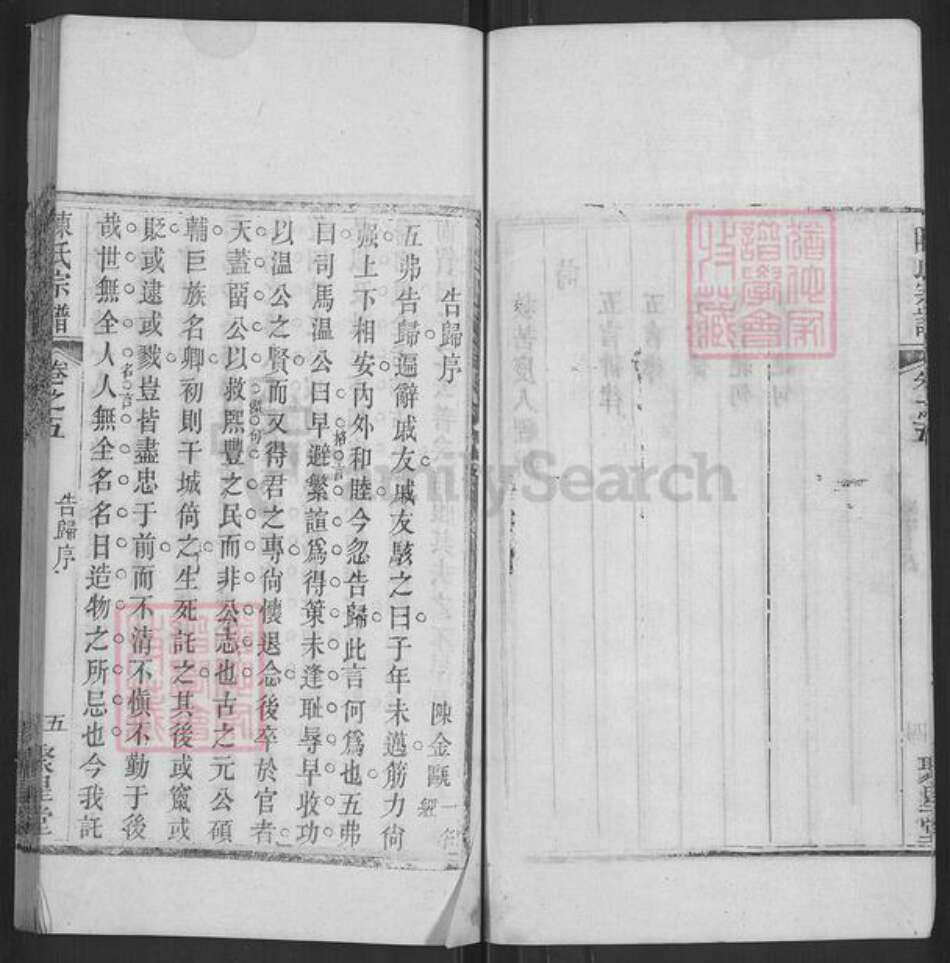 告歸序
陳金甌
五弗告歸遍辭戚友戚友駭之曰子年未邁筋力尙
强上下相安內外和睦今忽告歸此言何爲也五弗
曰司馬溫公曰早避繁諠爲得策未逢耻辱早收功
以溫公之賢而又得君之專尙懷退念後卒於官者
天蓋畱公以救熙豐之民而非公志也古之元公碩
輔巨族名卿初則干城倚之生死託之其後或竄或
貶或逮或戮豈皆盡忠于前而不清不愼不勤于後
哉世無全人人無全名名日造物之所忌也今我託
陳氏宗譜
卷之五
告歸序
五
聚星堂
卷之五
四
聚星堂
猶他家譜學會收藏
FamilySearch